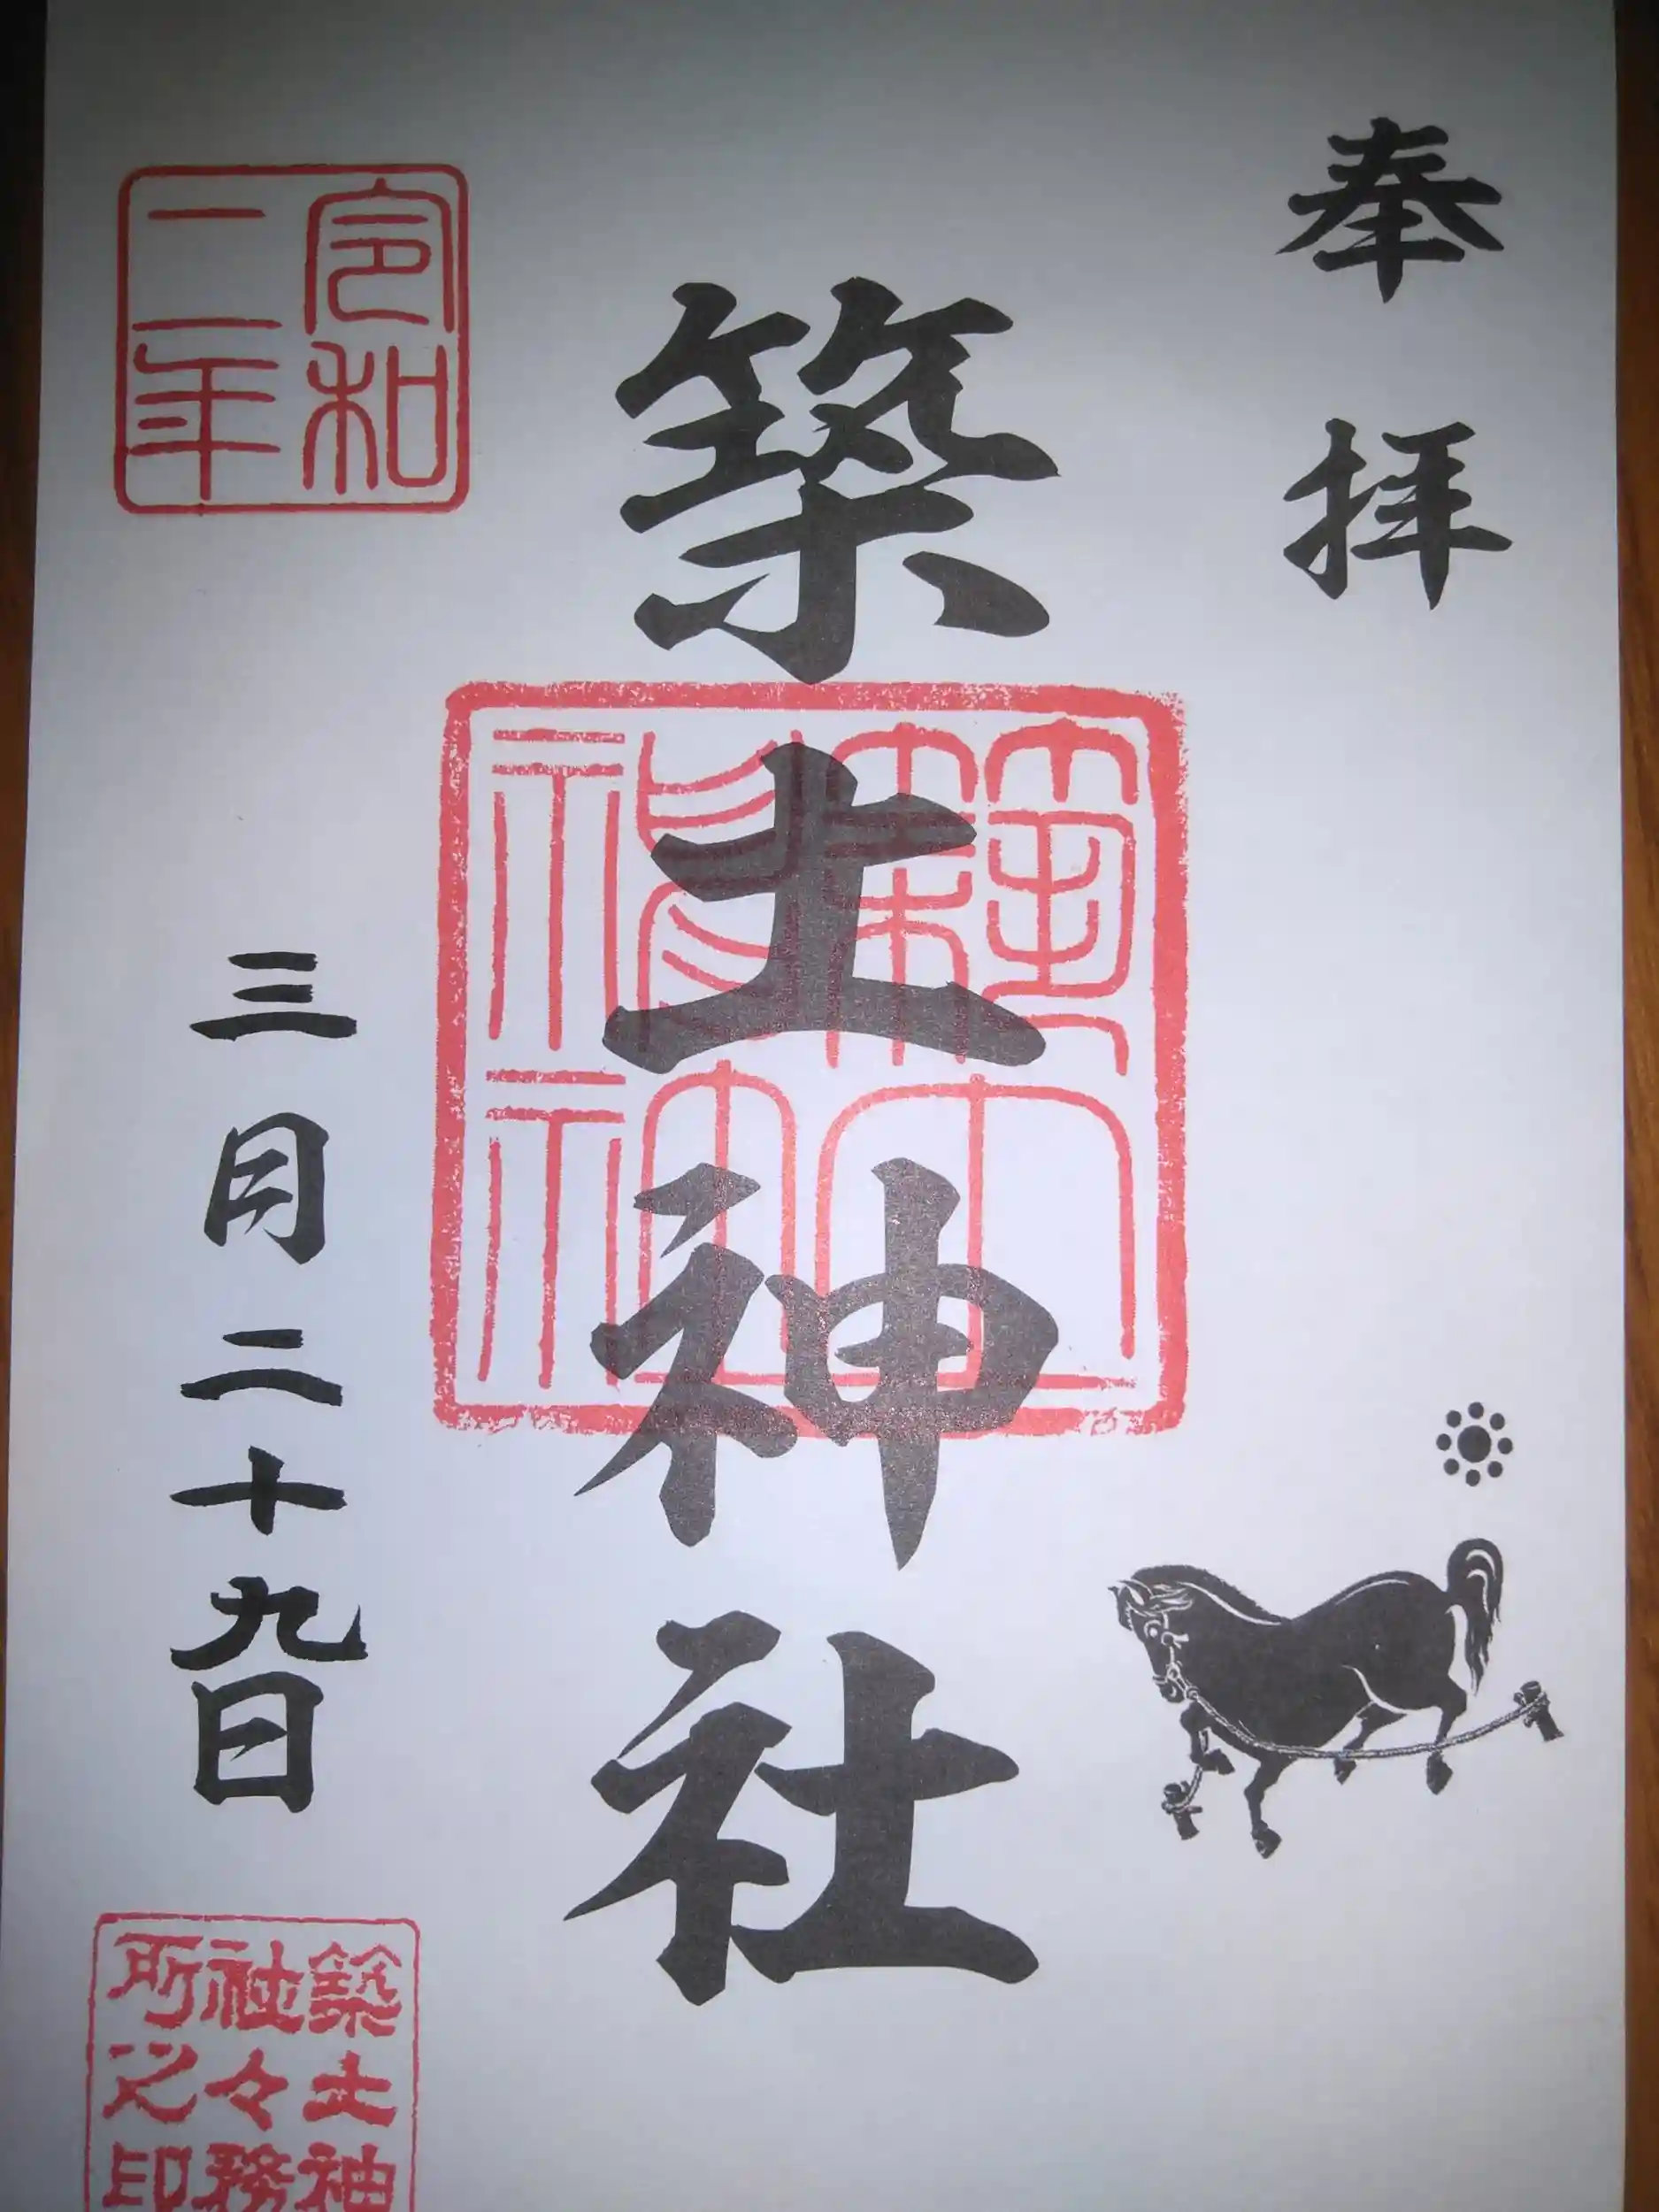 奉拝
築土神社
令和
二年
三月二十九日
築土神
社々務
所之印
築土
神社